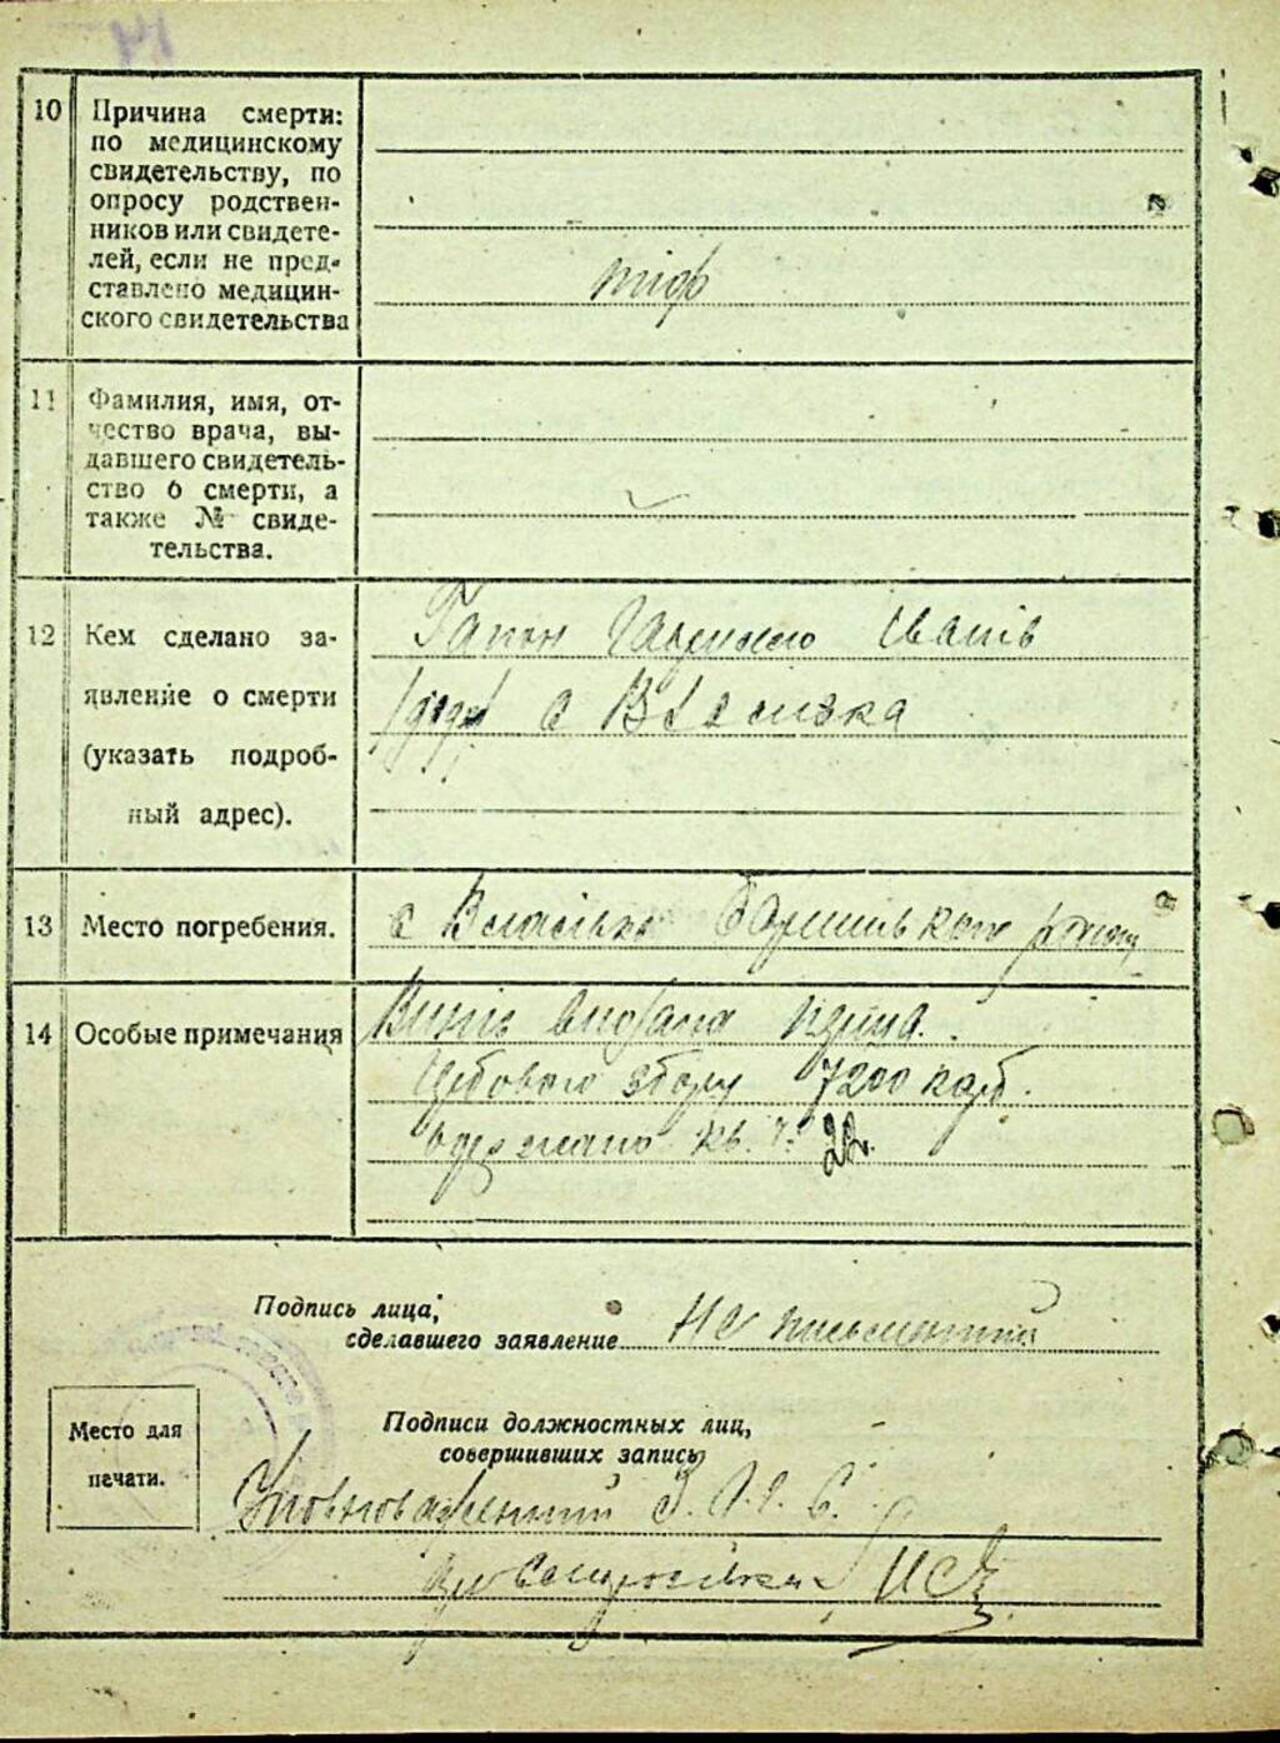 10 Причина смерти:
по медицинскому
свидетельству, по
опросу родствен-
ников или свидете-
лей, если не пред-
ставлено медицин-
ского свидетельства
тіф
11 Фамилия, имя, от-
чество врача, вы-
давшего свидетель-
ство о смерти, а
также № свиде-
тельства.
12 Кем сделано за-
явление о смерти
(указать подроб-
ный адрес).
Гапон Іванів
с
13 Место погребения.
с Власівка
14 Особые примечания
Випис видана
збору 7200 карб.
одержано кв. 22.
Подпись лица,
сделавшего заявление
Не письменний
Место для
печати.
Подписи должностных лиц,
совершивших запись
Уповноважений З.А.Г.С.